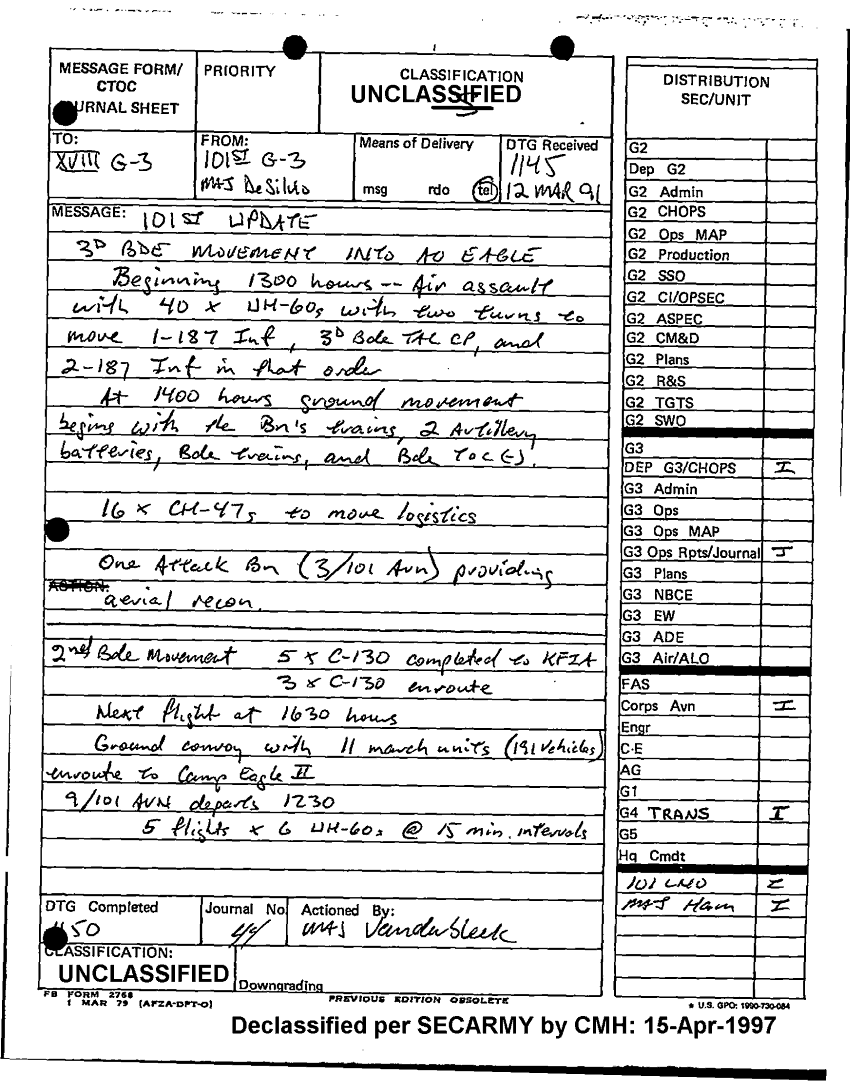 MESSAGE FORM/
CTOC
JOURNAL SHEET
PRIORITY
CLASSIFICATION
UNCLASSIFIED
TO:
XVIII G-3
FROM:
101ST G-3
MAJ DeSilvio
Means of Delivery
msg rdo tel
DTG Received
1145
12 MAR 91
MESSAGE: 101ST UPDATE
3D BDE MOVEMENT INTO AO EAGLE
Beginning 1300 hours -- Air assault
with 40 x UH-60s with two turns to
move 1-187 Inf, 3D Bde TAC CP, and
2-187 Inf in that order
At 1400 hours ground movement
begins with the Bn's trains, 2 Artillery
batteries, Bde trains, and Bde TOC (-).
16 x CH-47s to move logistics
One Attack Bn (3/101 Avn) providing
ACTION:
aerial recon.
2nd Bde Movement 5 x C-130 completed to KFIA
3 x C-130 enroute
Next flight at 1630 hours
Ground convoy with 11 march units (191 vehicles)
enroute to Camp Eagle II
9/101 AVN departs 1230
5 flights x 6 UH-60s @ 15 min. intervals
DTG Completed
1150
Journal No.
44
Actioned By:
MAJ Vanderbleek
CLASSIFICATION:
UNCLASSIFIED
Downgrading
FB FORM 2768
1 MAR 79 (AFZA-DPT-O)
PREVIOUS EDITION OBSOLETE
DISTRIBUTION
SEC/UNIT
G2
Dep G2
G2 Admin
G2 CHOPS
G2 Ops MAP
G2 Production
G2 SSO
G2 CI/OPSEC
G2 ASPEC
G2 CM&D
G2 Plans
G2 R&S
G2 TGTS
G2 SWO
G3
DEP G3/CHOPS I
G3 Admin
G3 Ops
G3 Ops MAP
G3 Ops Rpts/Journal I
G3 Plans
G3 NBCE
G3 EW
G3 ADE
G3 Air/ALO
FAS
Corps Avn I
Engr
C-E
AG
G1
G4 TRANS I
G5
Hq Cmdt
101 LNO I
MAJ Ham I
★ U.S. GPO: 1990-730-084
Declassified per SECARMY by CMH: 15-Apr-1997